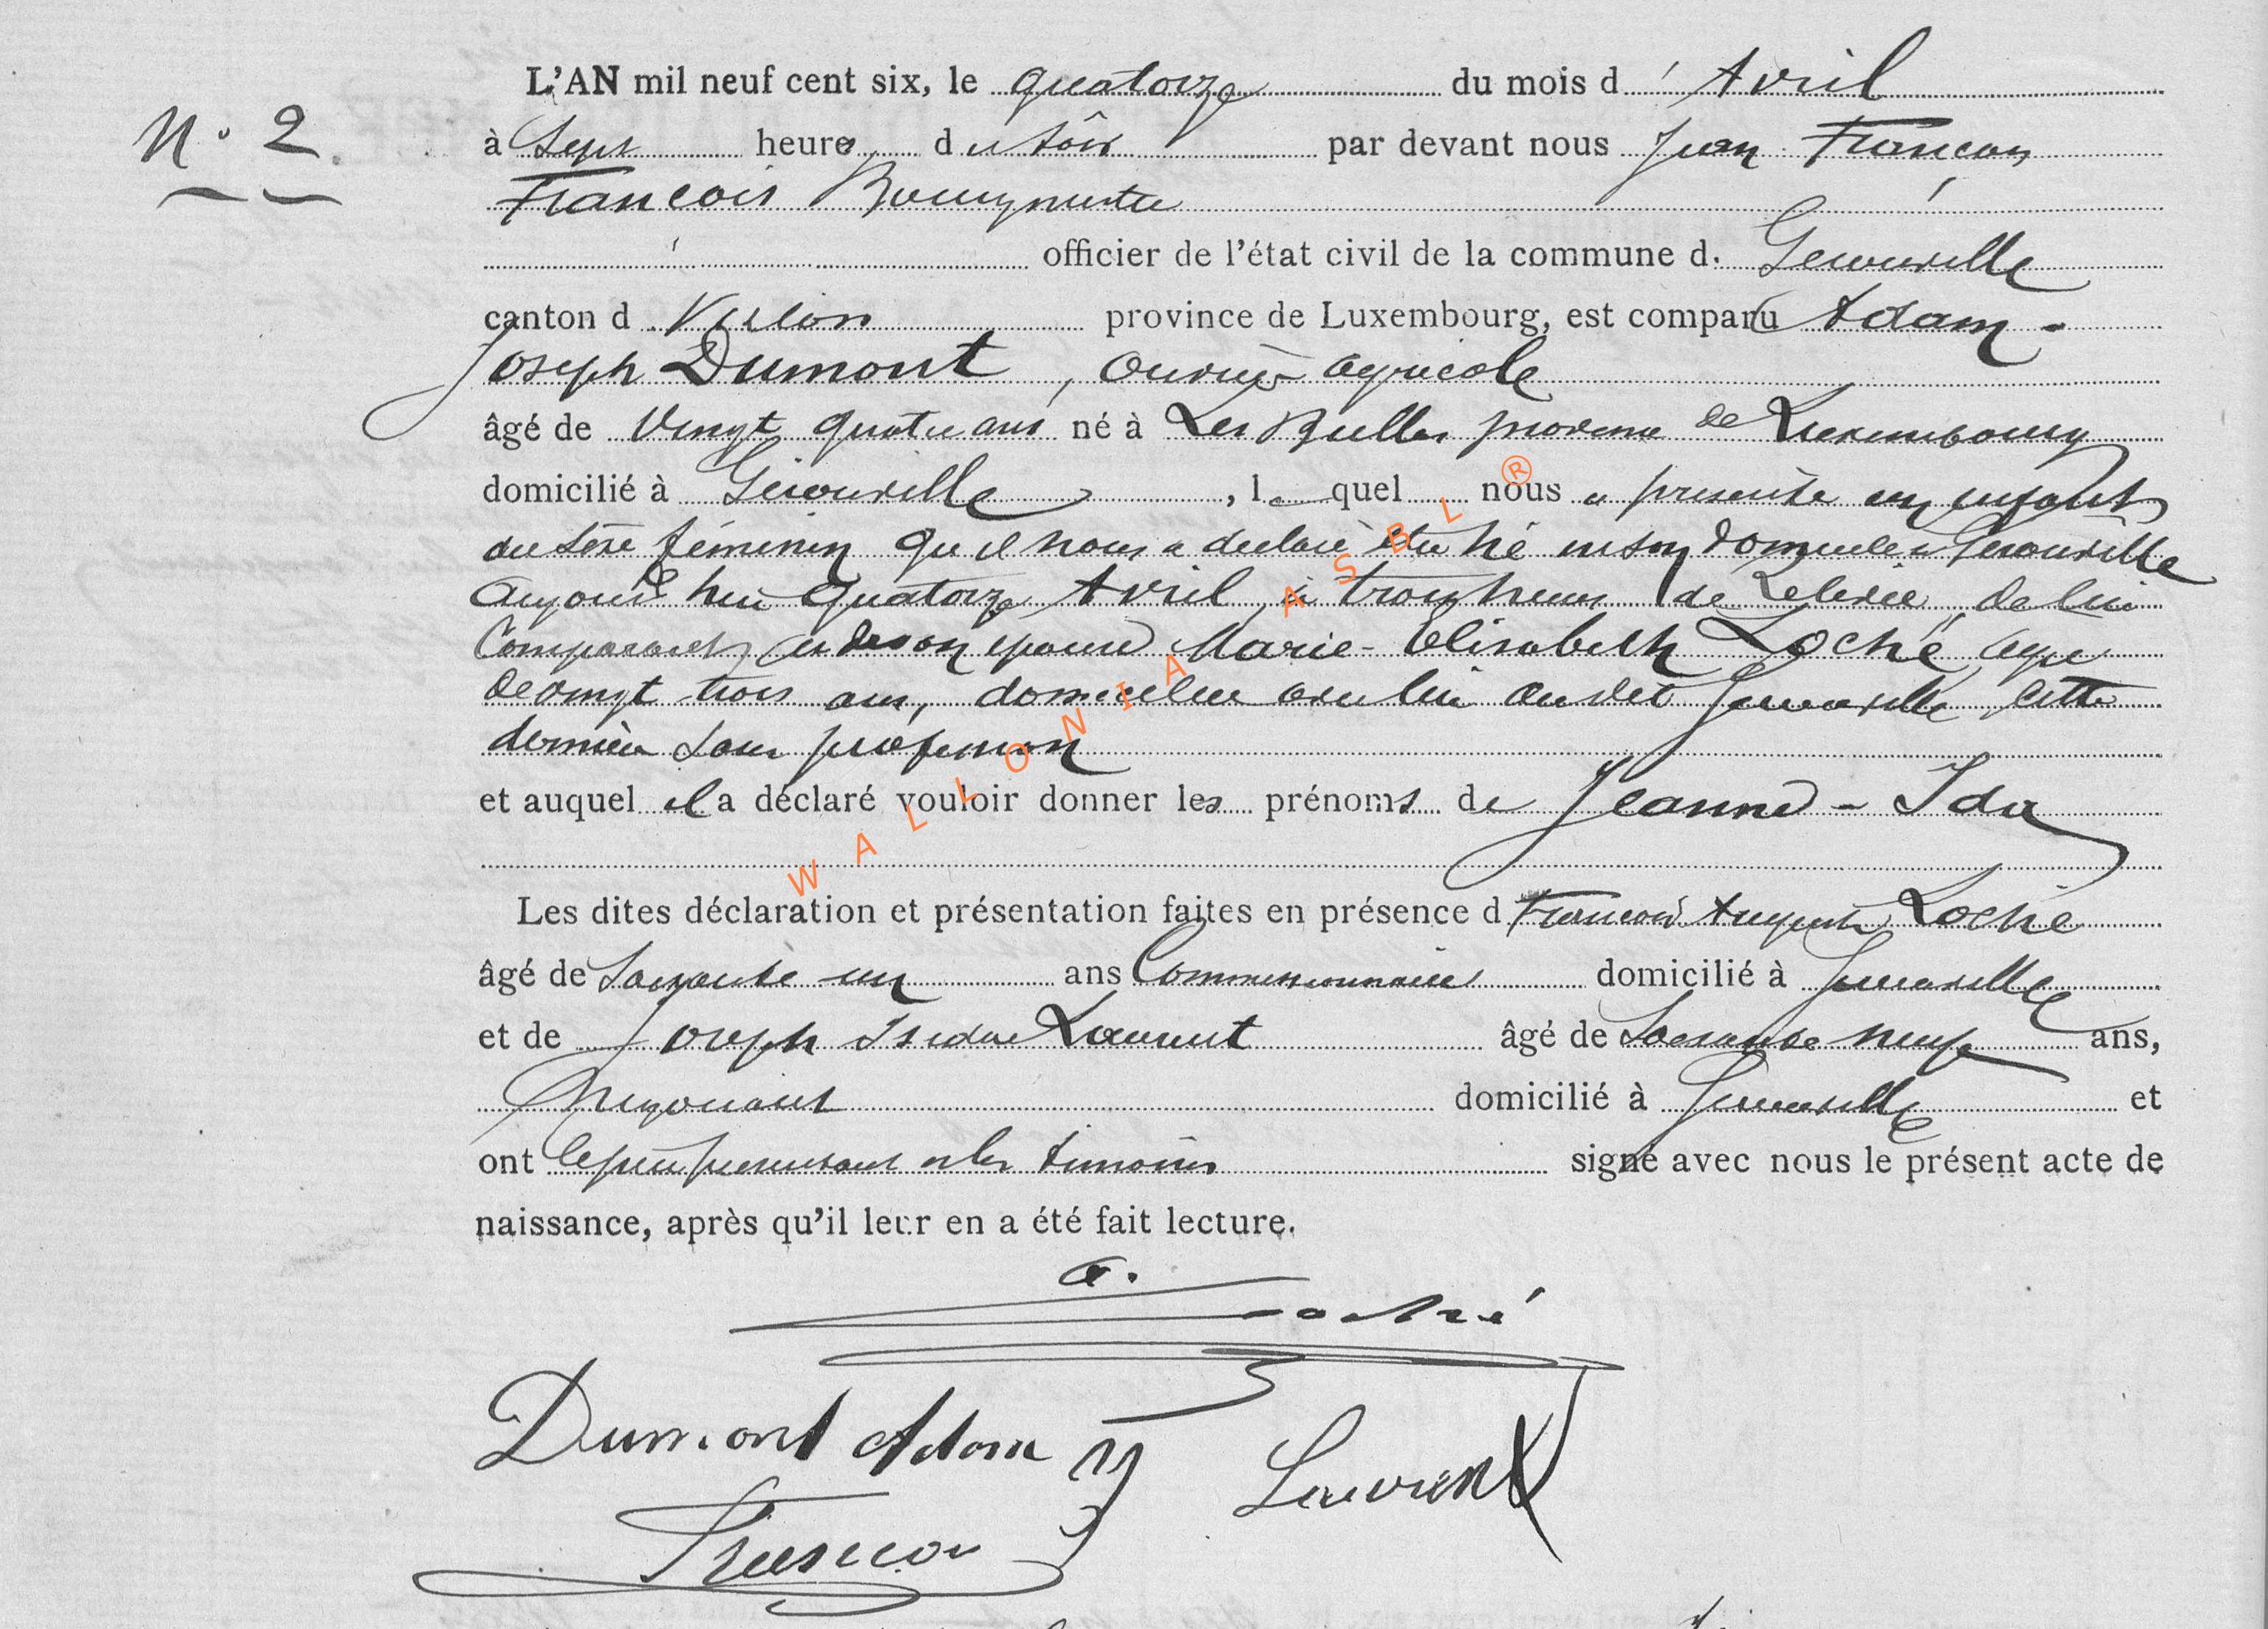 L'AN mil neuf cent six, le quatorze du mois d'Avril
N° 2
à Sept heures du soir par devant nous Jean François
François
officier de l'état civil de la commune de Gérouville
canton de Virton province de Luxembourg, est comparu Adam-
Joseph Dumont, ouvrier agricole
âgé de vingt quatre ans né à Les Bulles province de Luxembourg
domicilié à Gérouville, lequel nous a présenté un enfant
du sexe féminin qu'il nous a déclaré être né en son domicile à Gérouville
aujourd'hui quatorze Avril, à trois heures de relevée, de lui
comparant et de son épouse Marie-Elisabeth Loché, agée
de vingt trois ans, domiciliée avec lui au dit Gérouville, cette
dernière sans profession
et auquel il a déclaré vouloir donner les prénoms de Jeanne-Ida
Les dites déclaration et présentation faites en présence de François Auguste Loché
âgé de soixante un ans Commissionnaire domicilié à Gérouville
et de Joseph Isidore Laurent âgé de soixante neuf ans,
Négociant domicilié à Gérouville et
ont le père présentant et les témoins signé avec nous le présent acte de
naissance, après qu'il leur en a été fait lecture.
a. Loché
Dumont Adam
Laurent
WALLONIA ASBL ®